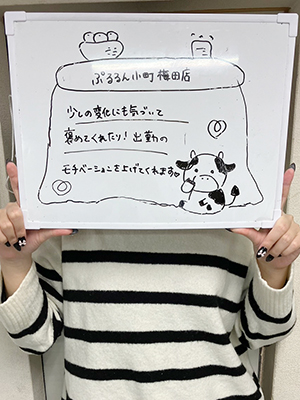 ぷるるん小町梅田店
少しの変化にも気づいて
褒めてくれたり！出勤の
モチベーションを上げてくれます♡